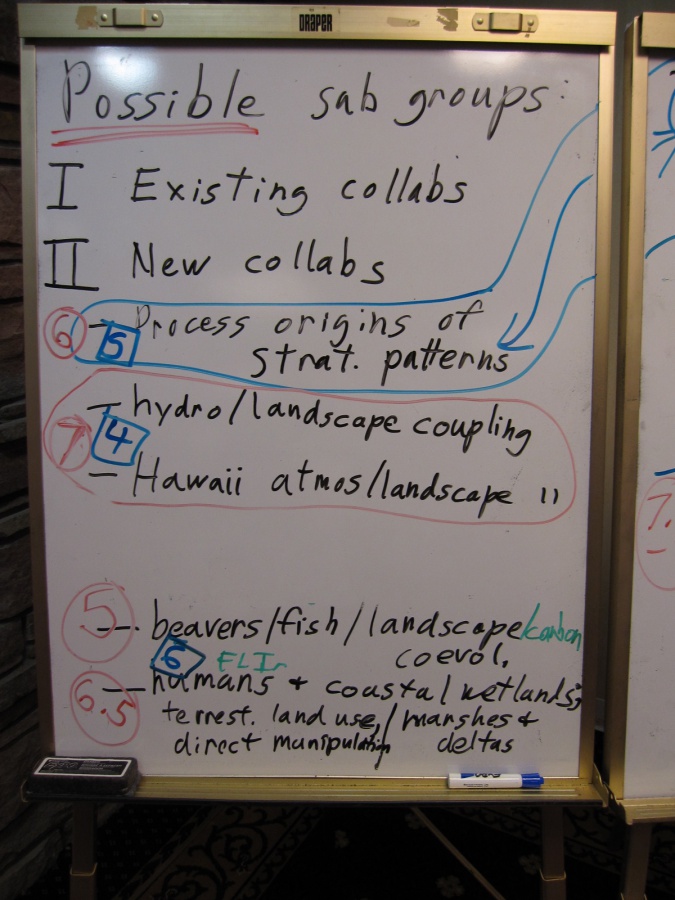 DRAPER
Possible sub groups:
I Existing collabs
II New collabs
6 - Process origins of
5 strat. patterns
7 - hydro/landscape coupling
4
- Hawaii atmos/landscape "
7.
5 -- beavers/fish/landscape/carbon
6 coevol.
6.5 -- humans + coastal wetlands;
terrest. land use,/marshes +
direct manipulation deltas